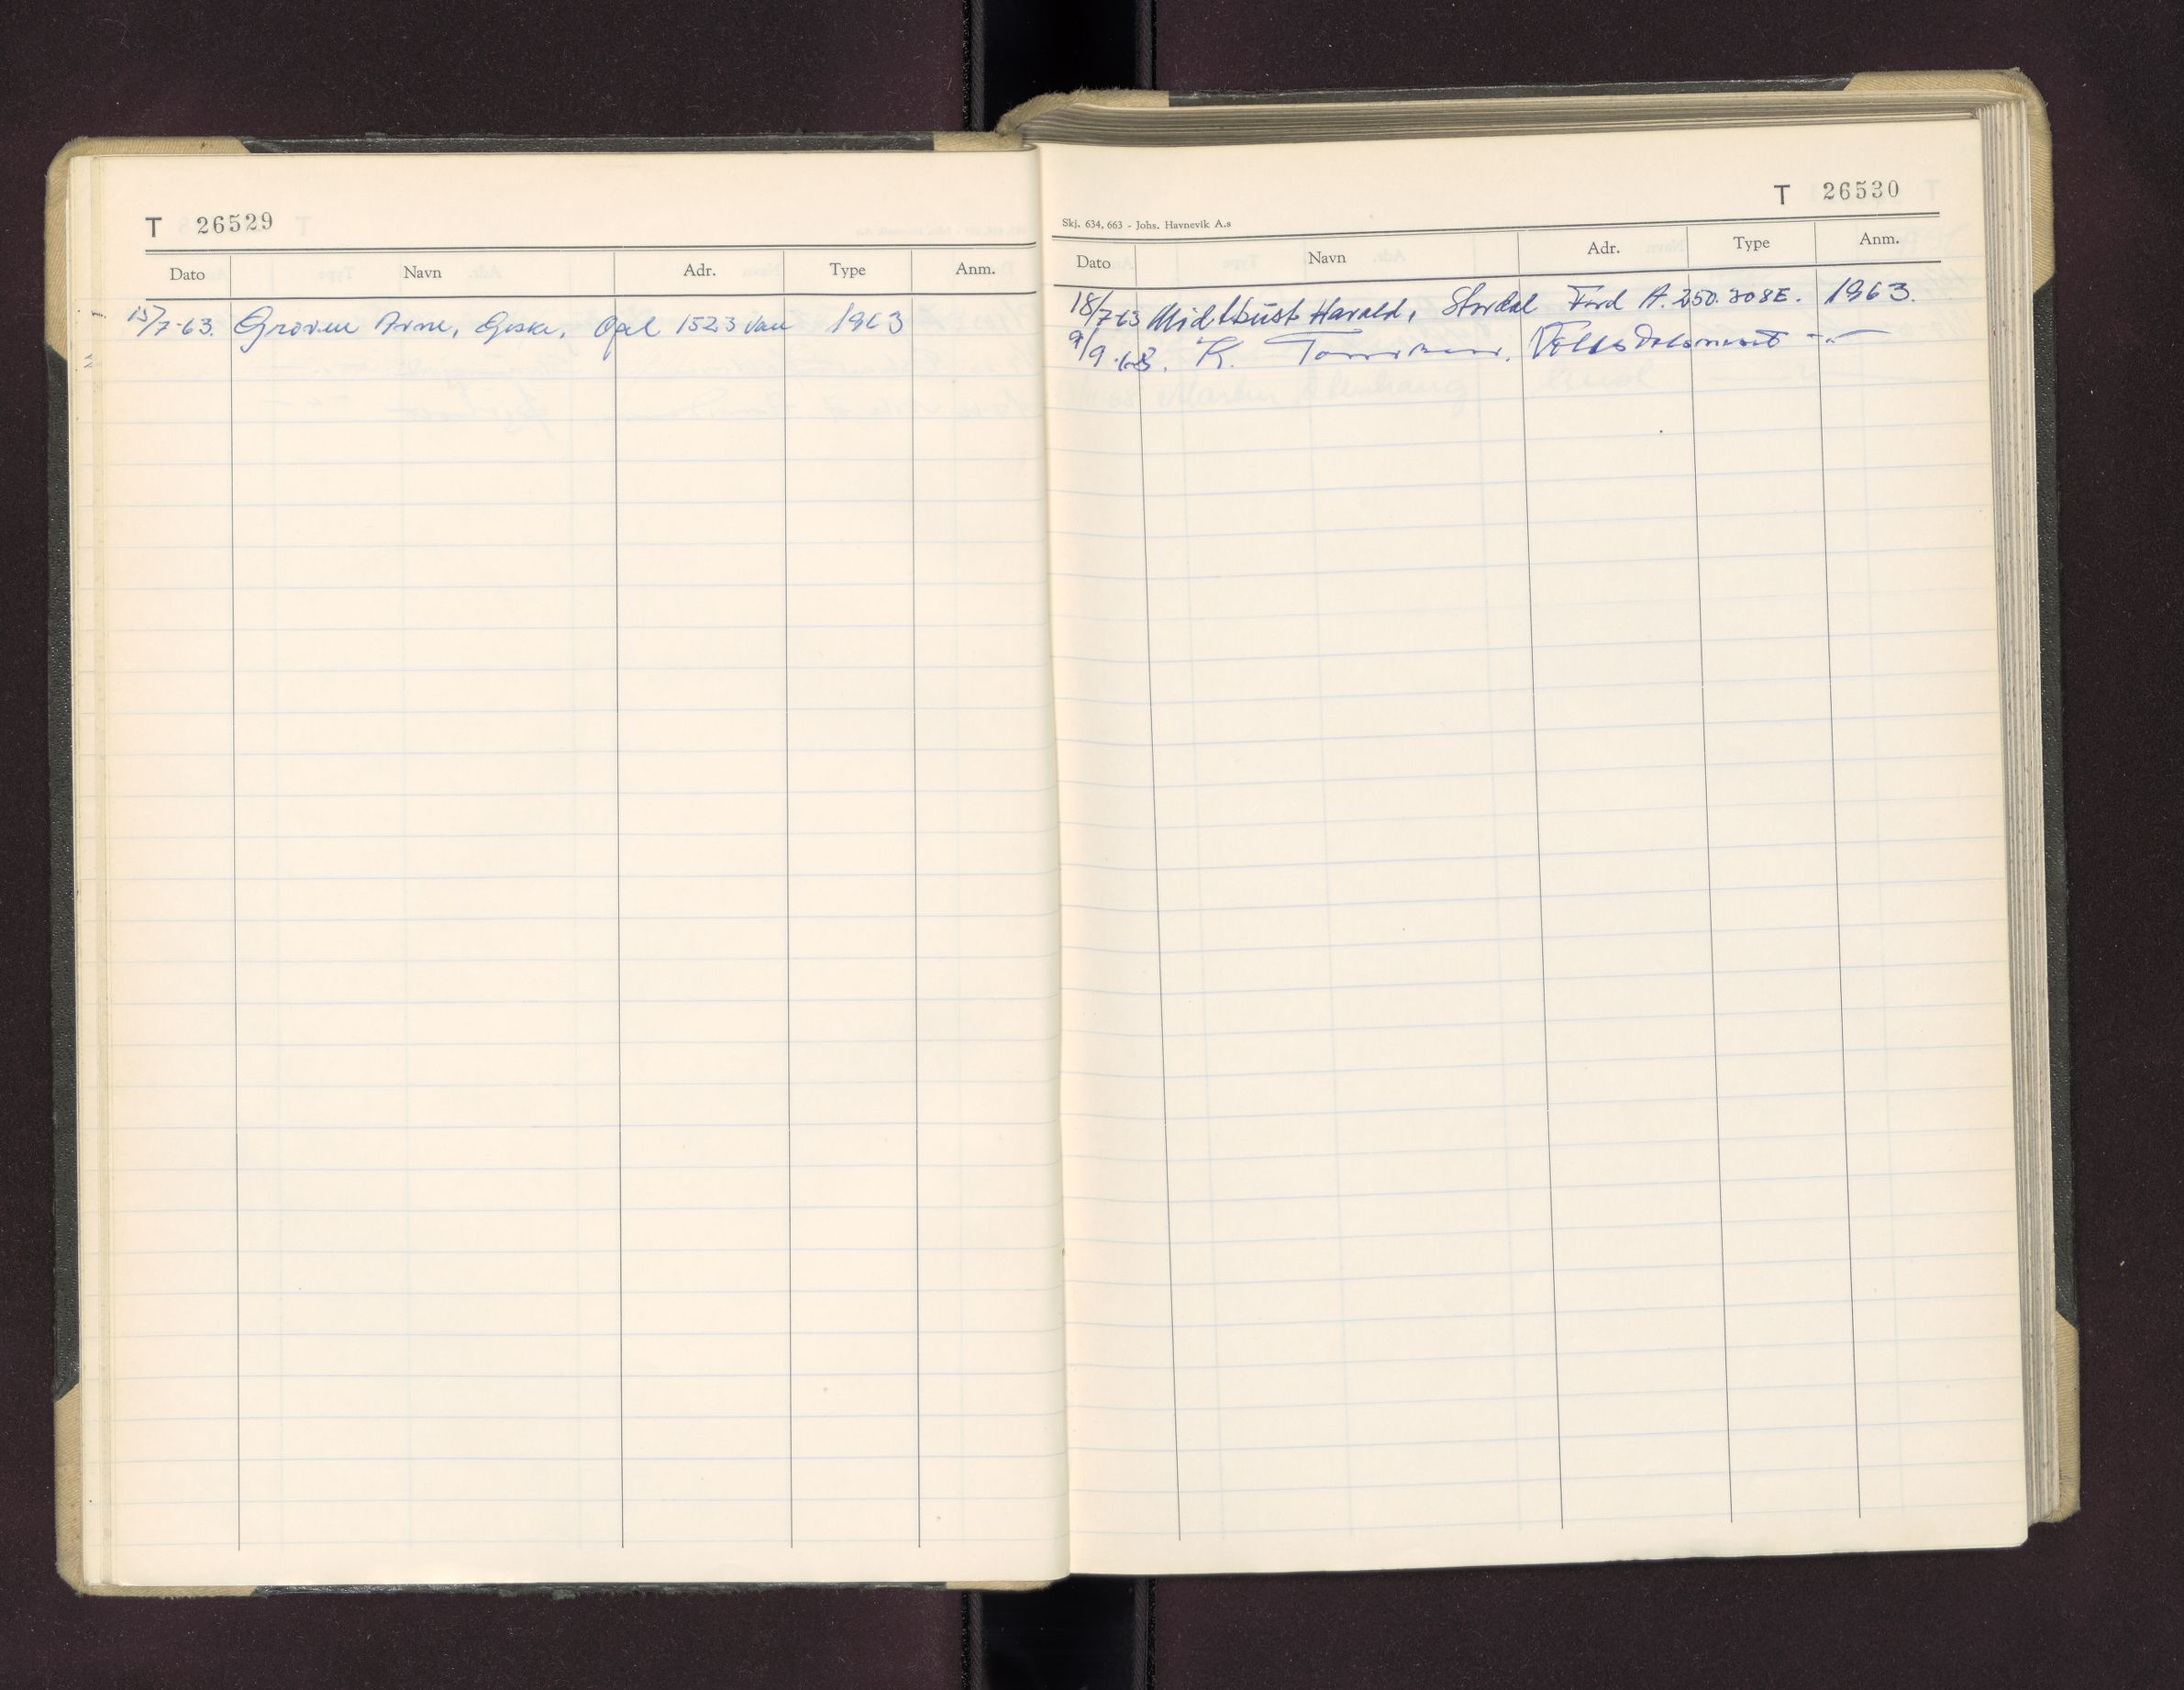 T 26529
Dato Navn Adr. Type Anm.
15/7-63. Groven Arne, Giske, Opel 1523 van 1963
T 26530
Skj. 634, 663 - Johs. Havnevik A.s
Dato Navn Adr. Type Anm.
18/7-63 Midtbust Harald, Stordal Ford A. 250.308E. 1963.
9/9-63. K. -"-